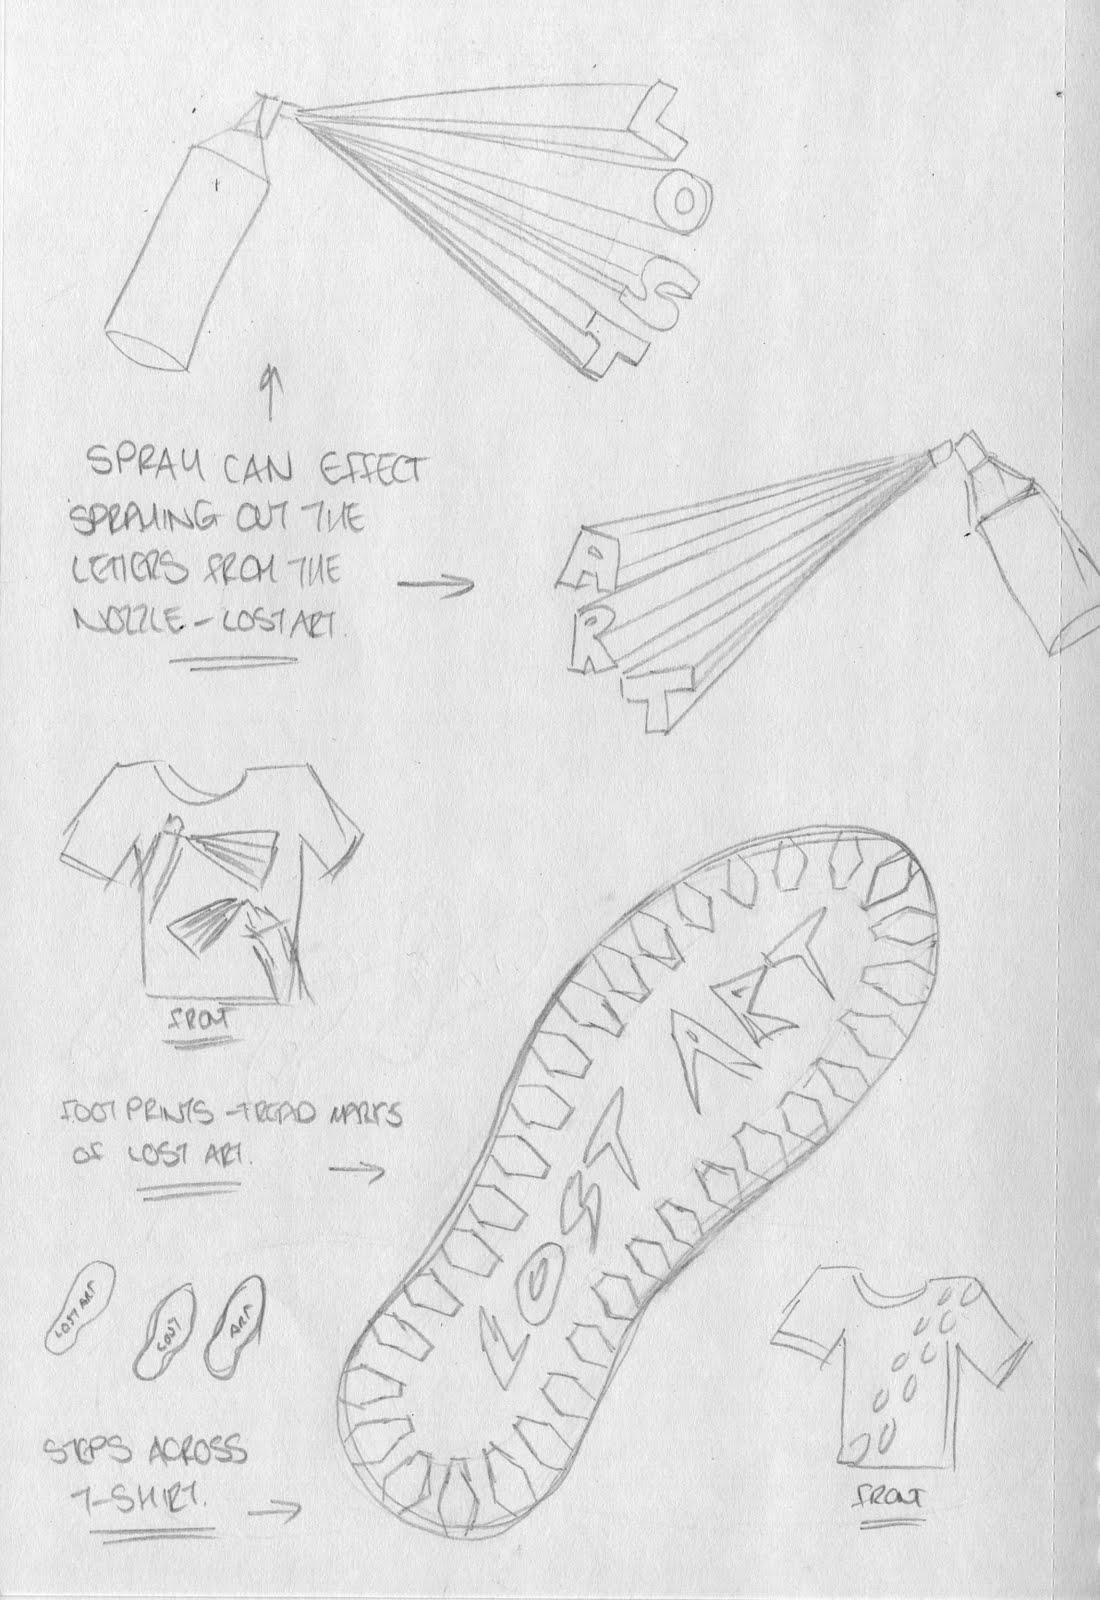 LOST
SPRAY CAN EFFECT
SPRAYING OUT THE
LETTERS FROM THE
NOZZLE - LOST ART.
ART
FRONT
FOOT PRINTS - TREAD MARKS
OF LOST ART.
LOST ART
LOST ART
LOST
ART
STEPS ACROSS
T-SHIRT.
FRONT